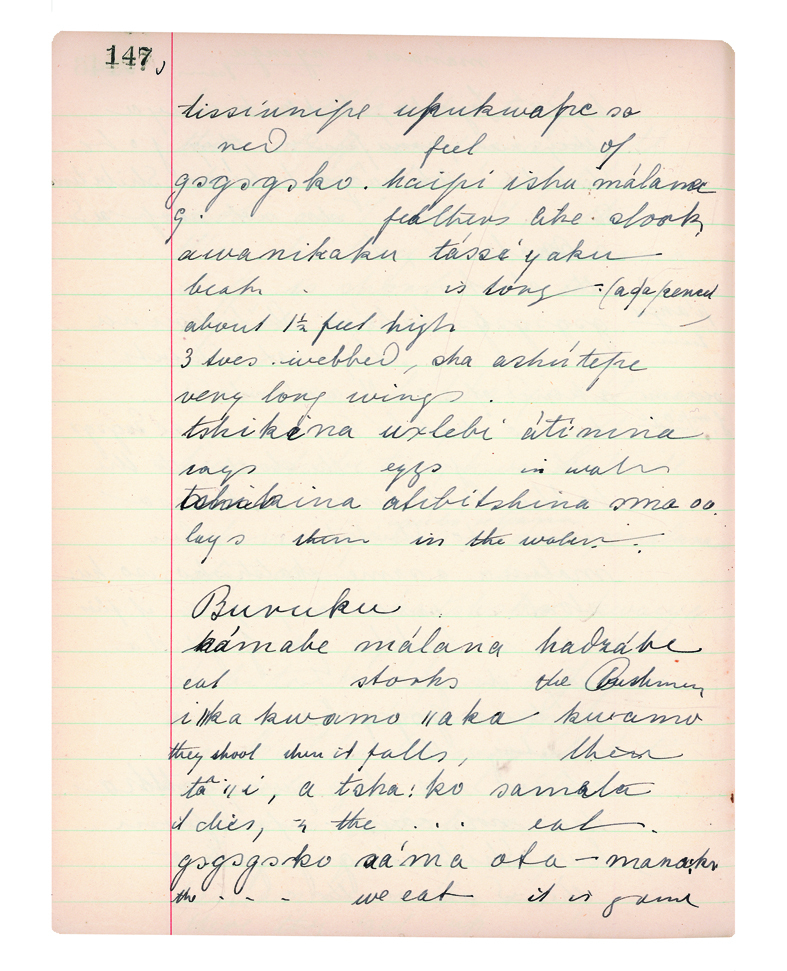 147
tissiunipe upukwape so
red feel of
gsgsgsko. haipi isha málana
g. feathers like stork
awanikaku tássé yaku
beak is long
about 1½ feet high
3 toes webbed, sha ashútepe
very long wings.
tshikina uxlebi átinina
says eggs in water
tshikina atibitshina sma oo.
lays them in the water.
Buruku
kámabe málana hadzábe
eat storks the Bushmen
i ǁka kwamo ǁaka kwamo
they shoot then it falls, then
a tsha: ko samata
it dies, the ... eat.
gsgsgsko ota – manako
the - - - we eat it is game